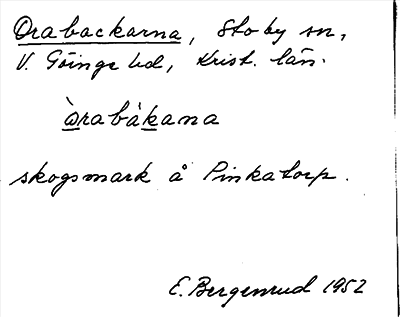 Orabackarna, Stoby sn,
V. Göinge hd, Krist. län.
òrabákana
skogsmark å Pinkatorp.
E. Bergenrud 1952